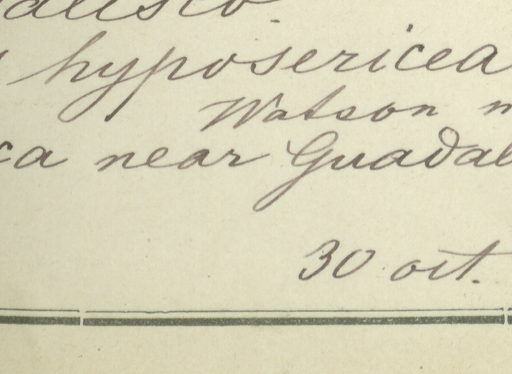 alisco.
hyposericea
Watson n
ca near Guadal
30 oct.